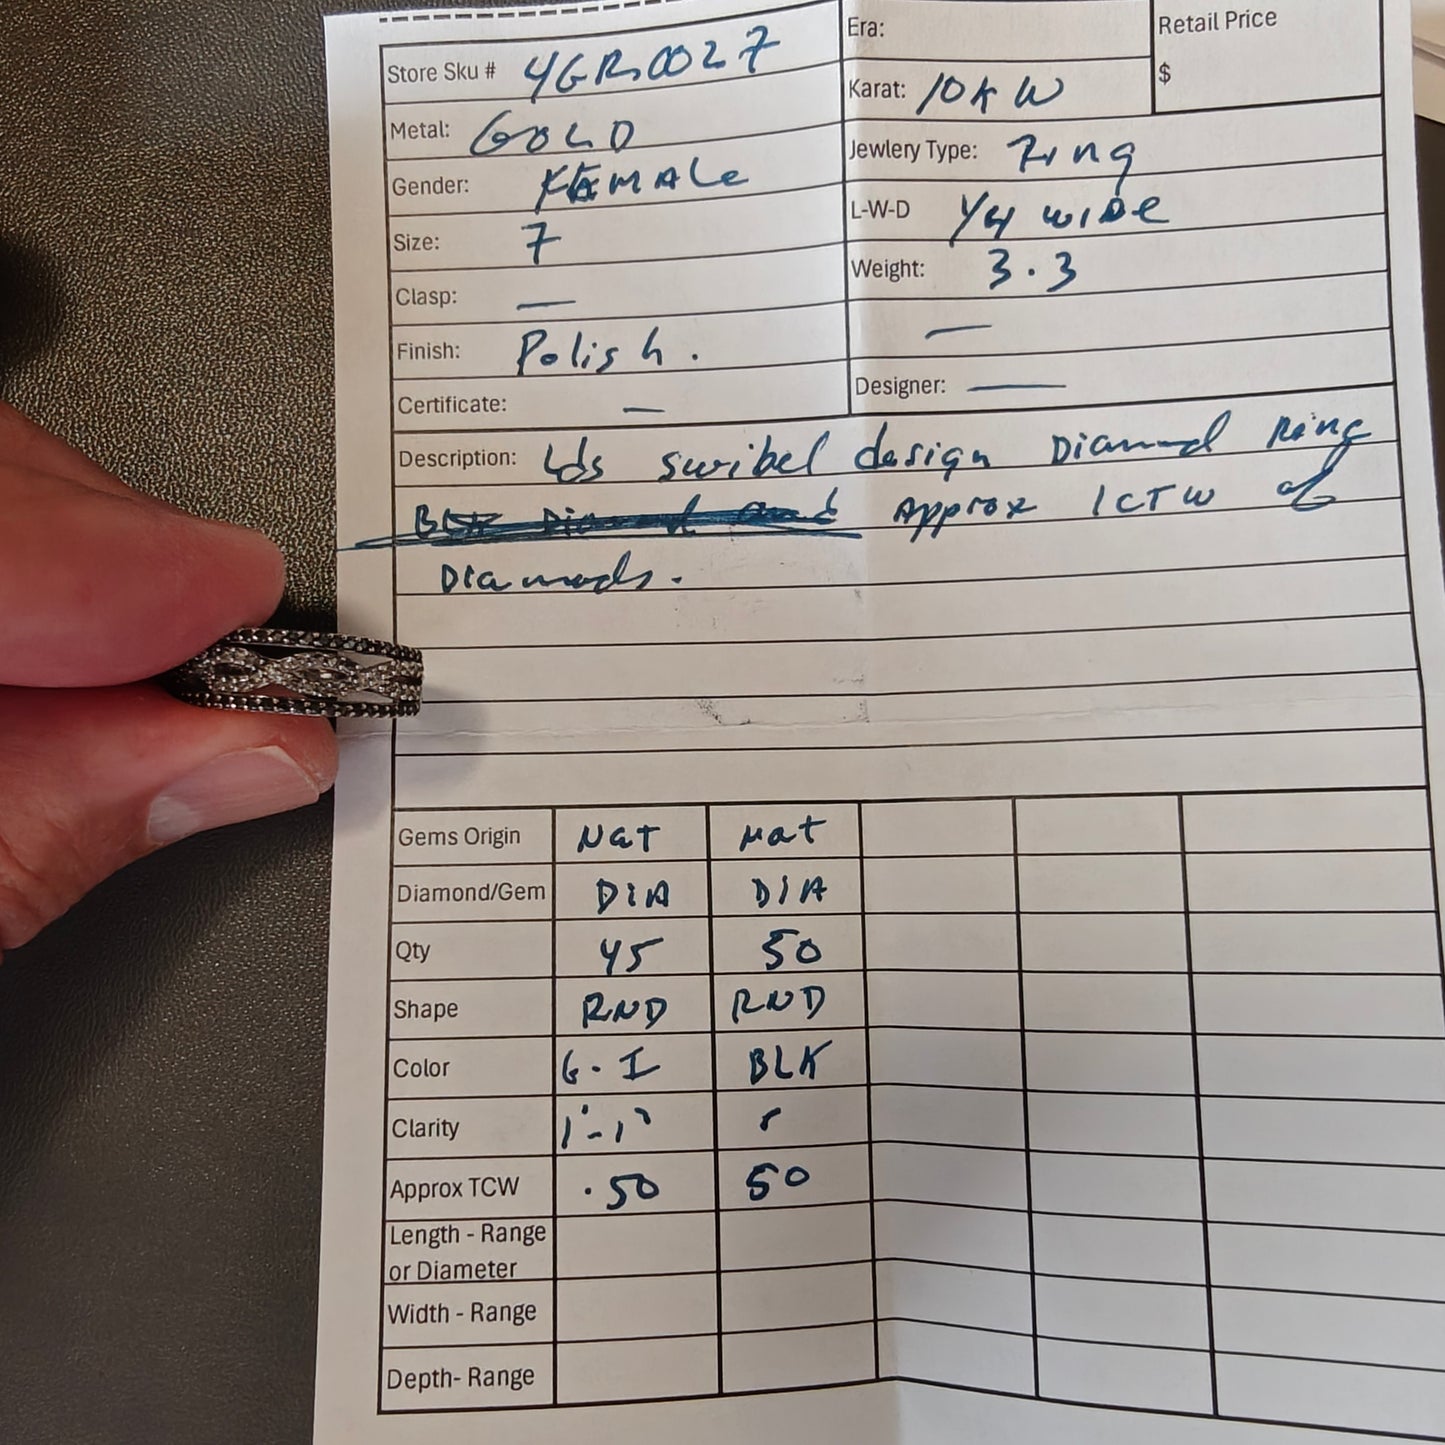 Store Sku # YGR0027
Era:
Retail Price
$
Karat: 10K W
Metal: GOLD
Jewlery Type: Ring
Gender: FEMALe
L-W-D 1/4 WIDe
Size: 7
Weight: 3.3
Clasp: —
—
Finish: Polish.
Designer: —
Certificate: —
Description: Lds swibel design Diamond Ring
Approx 1CTW of
Diamonds.
Gems Origin Nat Nat
Diamond/Gem DIA DIA
Qty 45 50
Shape RND RND
Color G-I BLK
Clarity
Approx TCW .50 50
Length - Range
or Diameter
Width - Range
Depth- Range